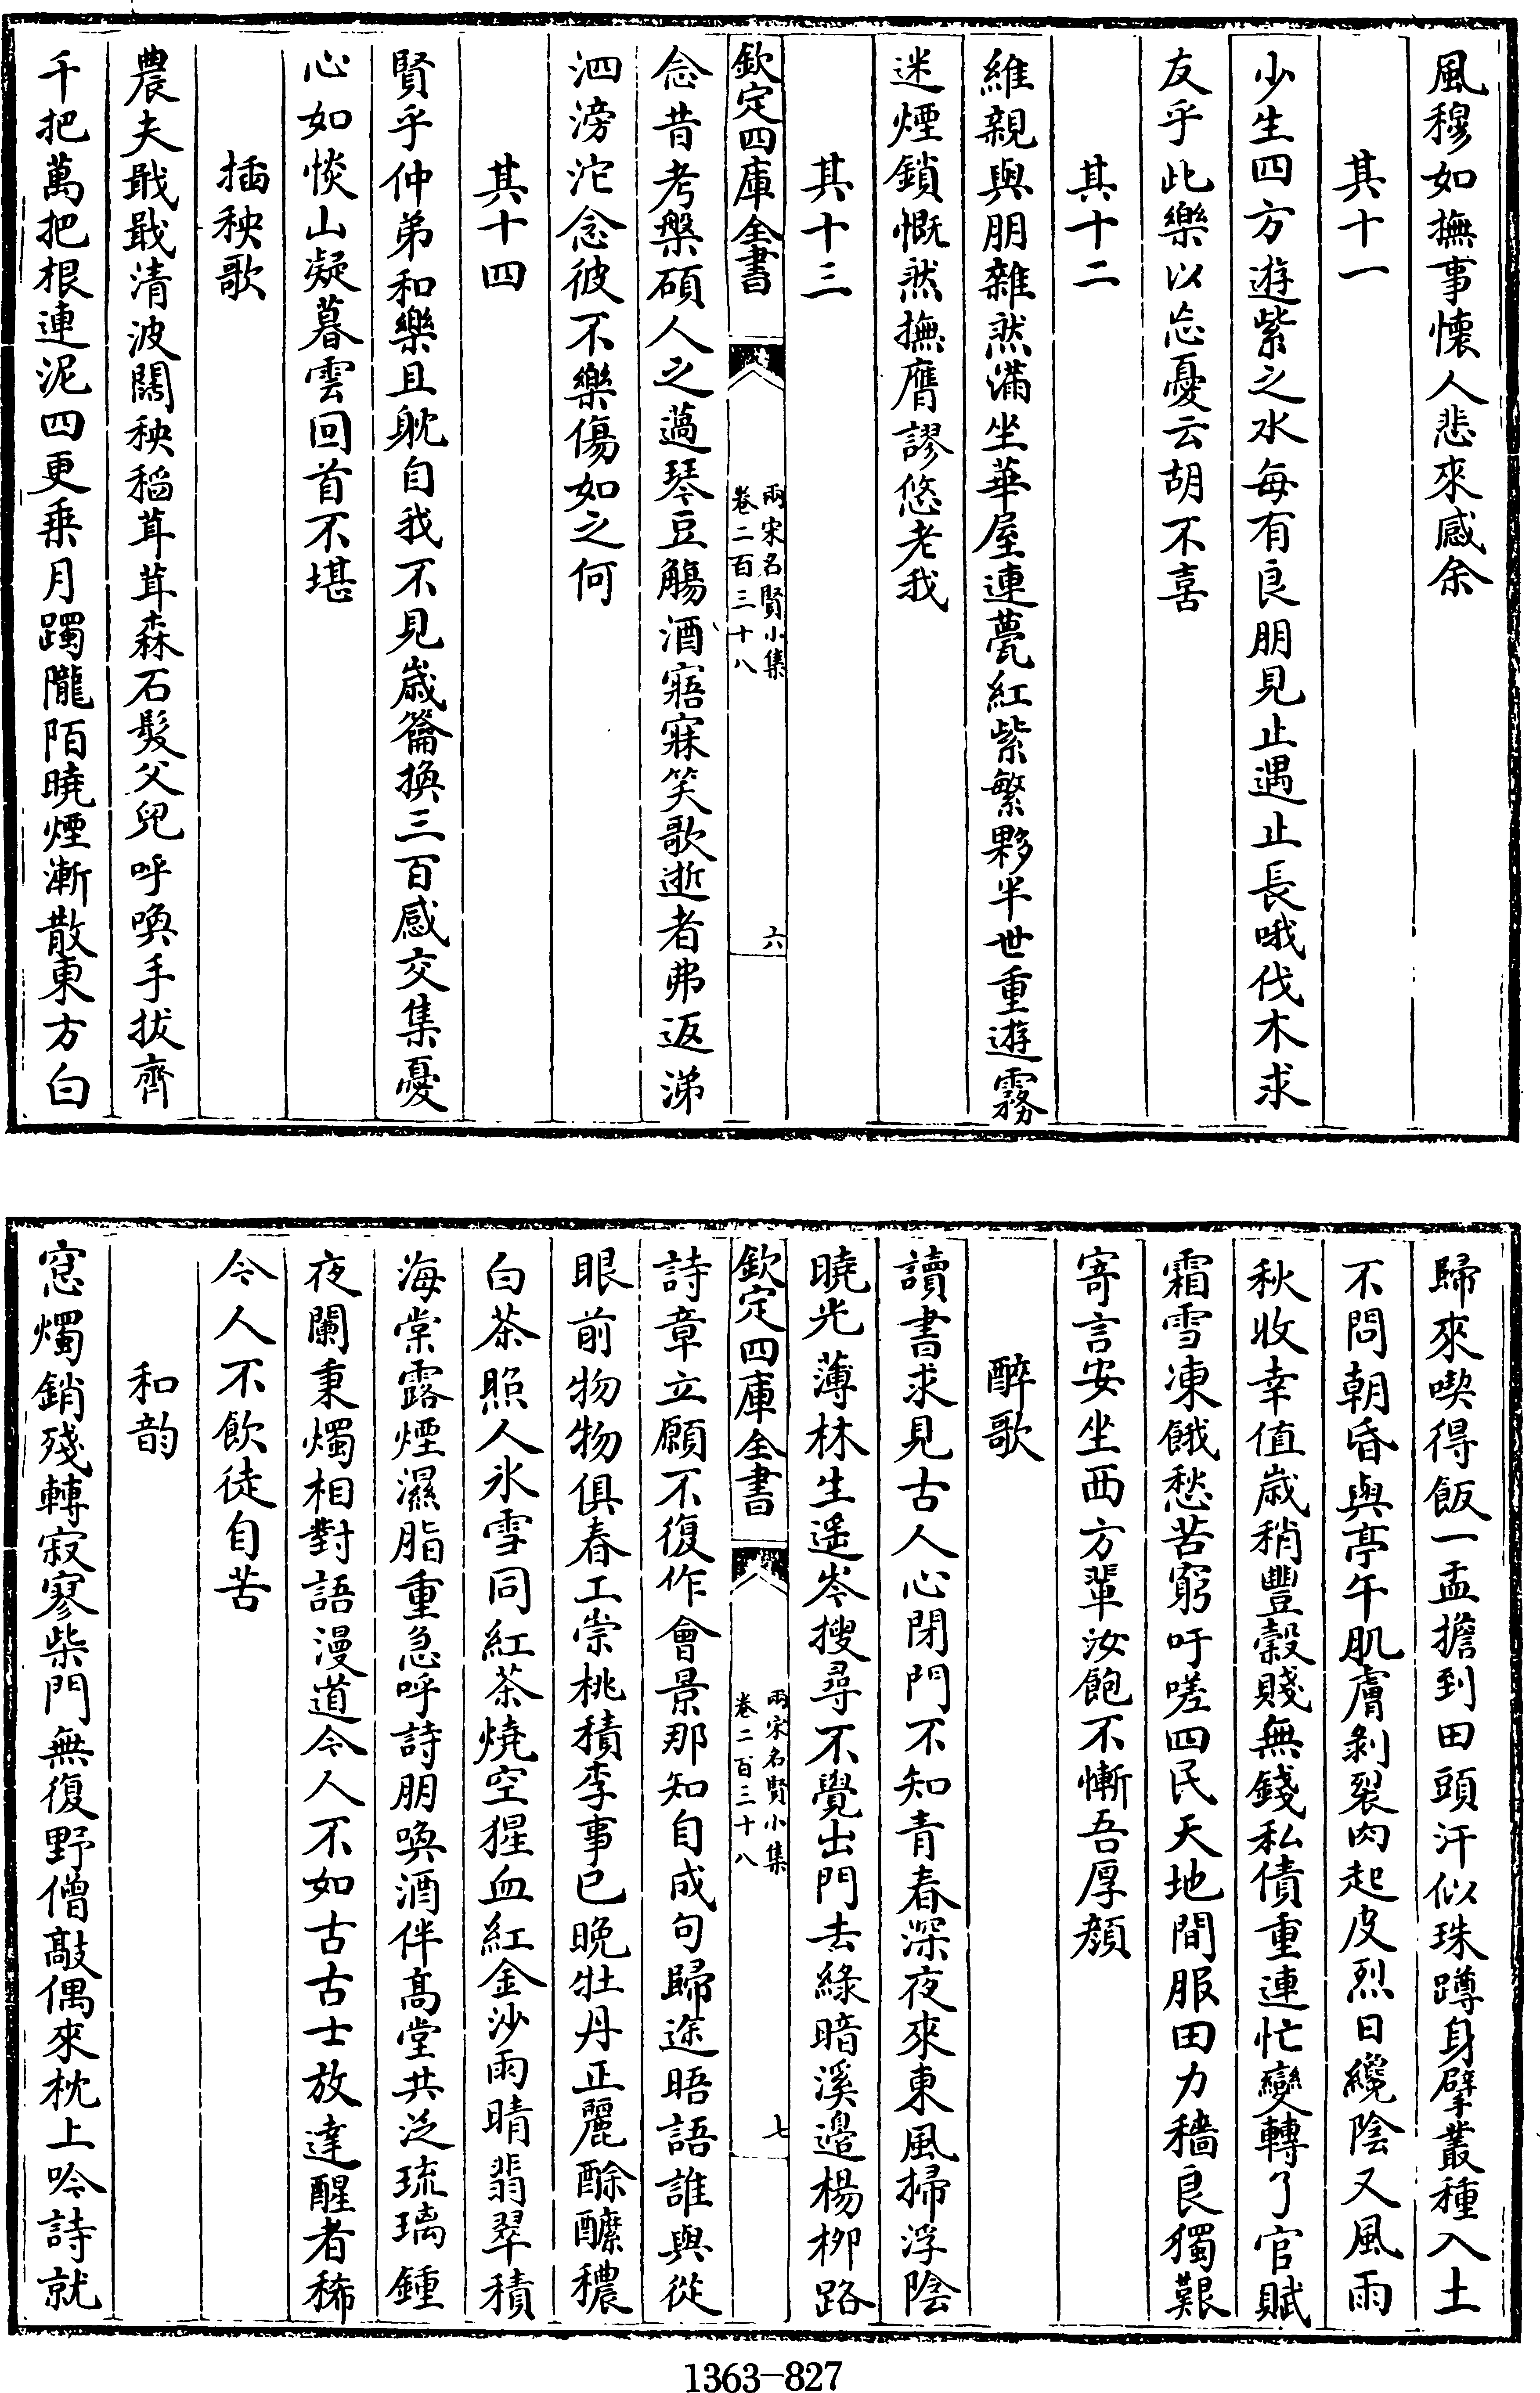 風穆如撫事懷人悲來感余
其十一
少生四方遊紫之水每有良朋見止遇止長哦伐木求
友乎此樂以忘憂云胡不喜
其十二
維親與朋雜然滿坐華屋連甍紅紫繁夥半世重遊霧
迷煙鎖慨然撫膺謬悠老我
其十三
欽定四庫全書
兩宋名賢小集
卷二百三十八
六
念昔考槃碩人之薖琴豆觴酒寤寐笑歌逝者弗返涕
泗滂沱念彼不樂傷如之何
其十四
賢乎仲弟和樂且躭自我不見歲籥換三百感交集憂
心如惔山凝暮雲回首不堪
插秧歌
農夫戢戢清波闊秧稻茸茸森石髮父兒呼喚手拔齊
千把萬把根連泥四更乗月躅隴陌曉煙漸散東方白
歸來喫得飯一盂擔到田頭汗似珠蹲身擘叢種入土
不問朝昏與亭午肌膚剝裂肉起皮烈日纔陰又風雨
秋收幸值歲稍豐穀賤無錢私債重連忙變轉了官賦
霜雪凍餓愁苦窮吁嗟四民天地間服田力穡良獨艱
寄言安坐西方輩汝飽不慚吾厚顔
醉歌
讀書求見古人心閉門不知青春深夜來東風掃浮陰
曉光薄林生遥岑搜尋不覺出門去緑暗溪邉楊栁路
欽定四庫全書
兩宋名賢小集
卷二百三十八
七
詩章立願不復作會景那知自成句歸途晤語誰與從
眼前物物俱春工崇桃積李事已晚牡丹正麗酴醿穠
白茶照人氷雪同紅茶燒空猩血紅金沙雨晴翡翠積
海棠露煙濕脂重急呼詩朋喚酒伴髙堂共泛琉璃鍾
夜闌秉燭相對語漫道今人不如古古士放達醒者稀
今人不飲徒自苦
和韵
窓燭銷殘轉寂寥柴門無復野僧敲偶來枕上吟詩就
1363-827